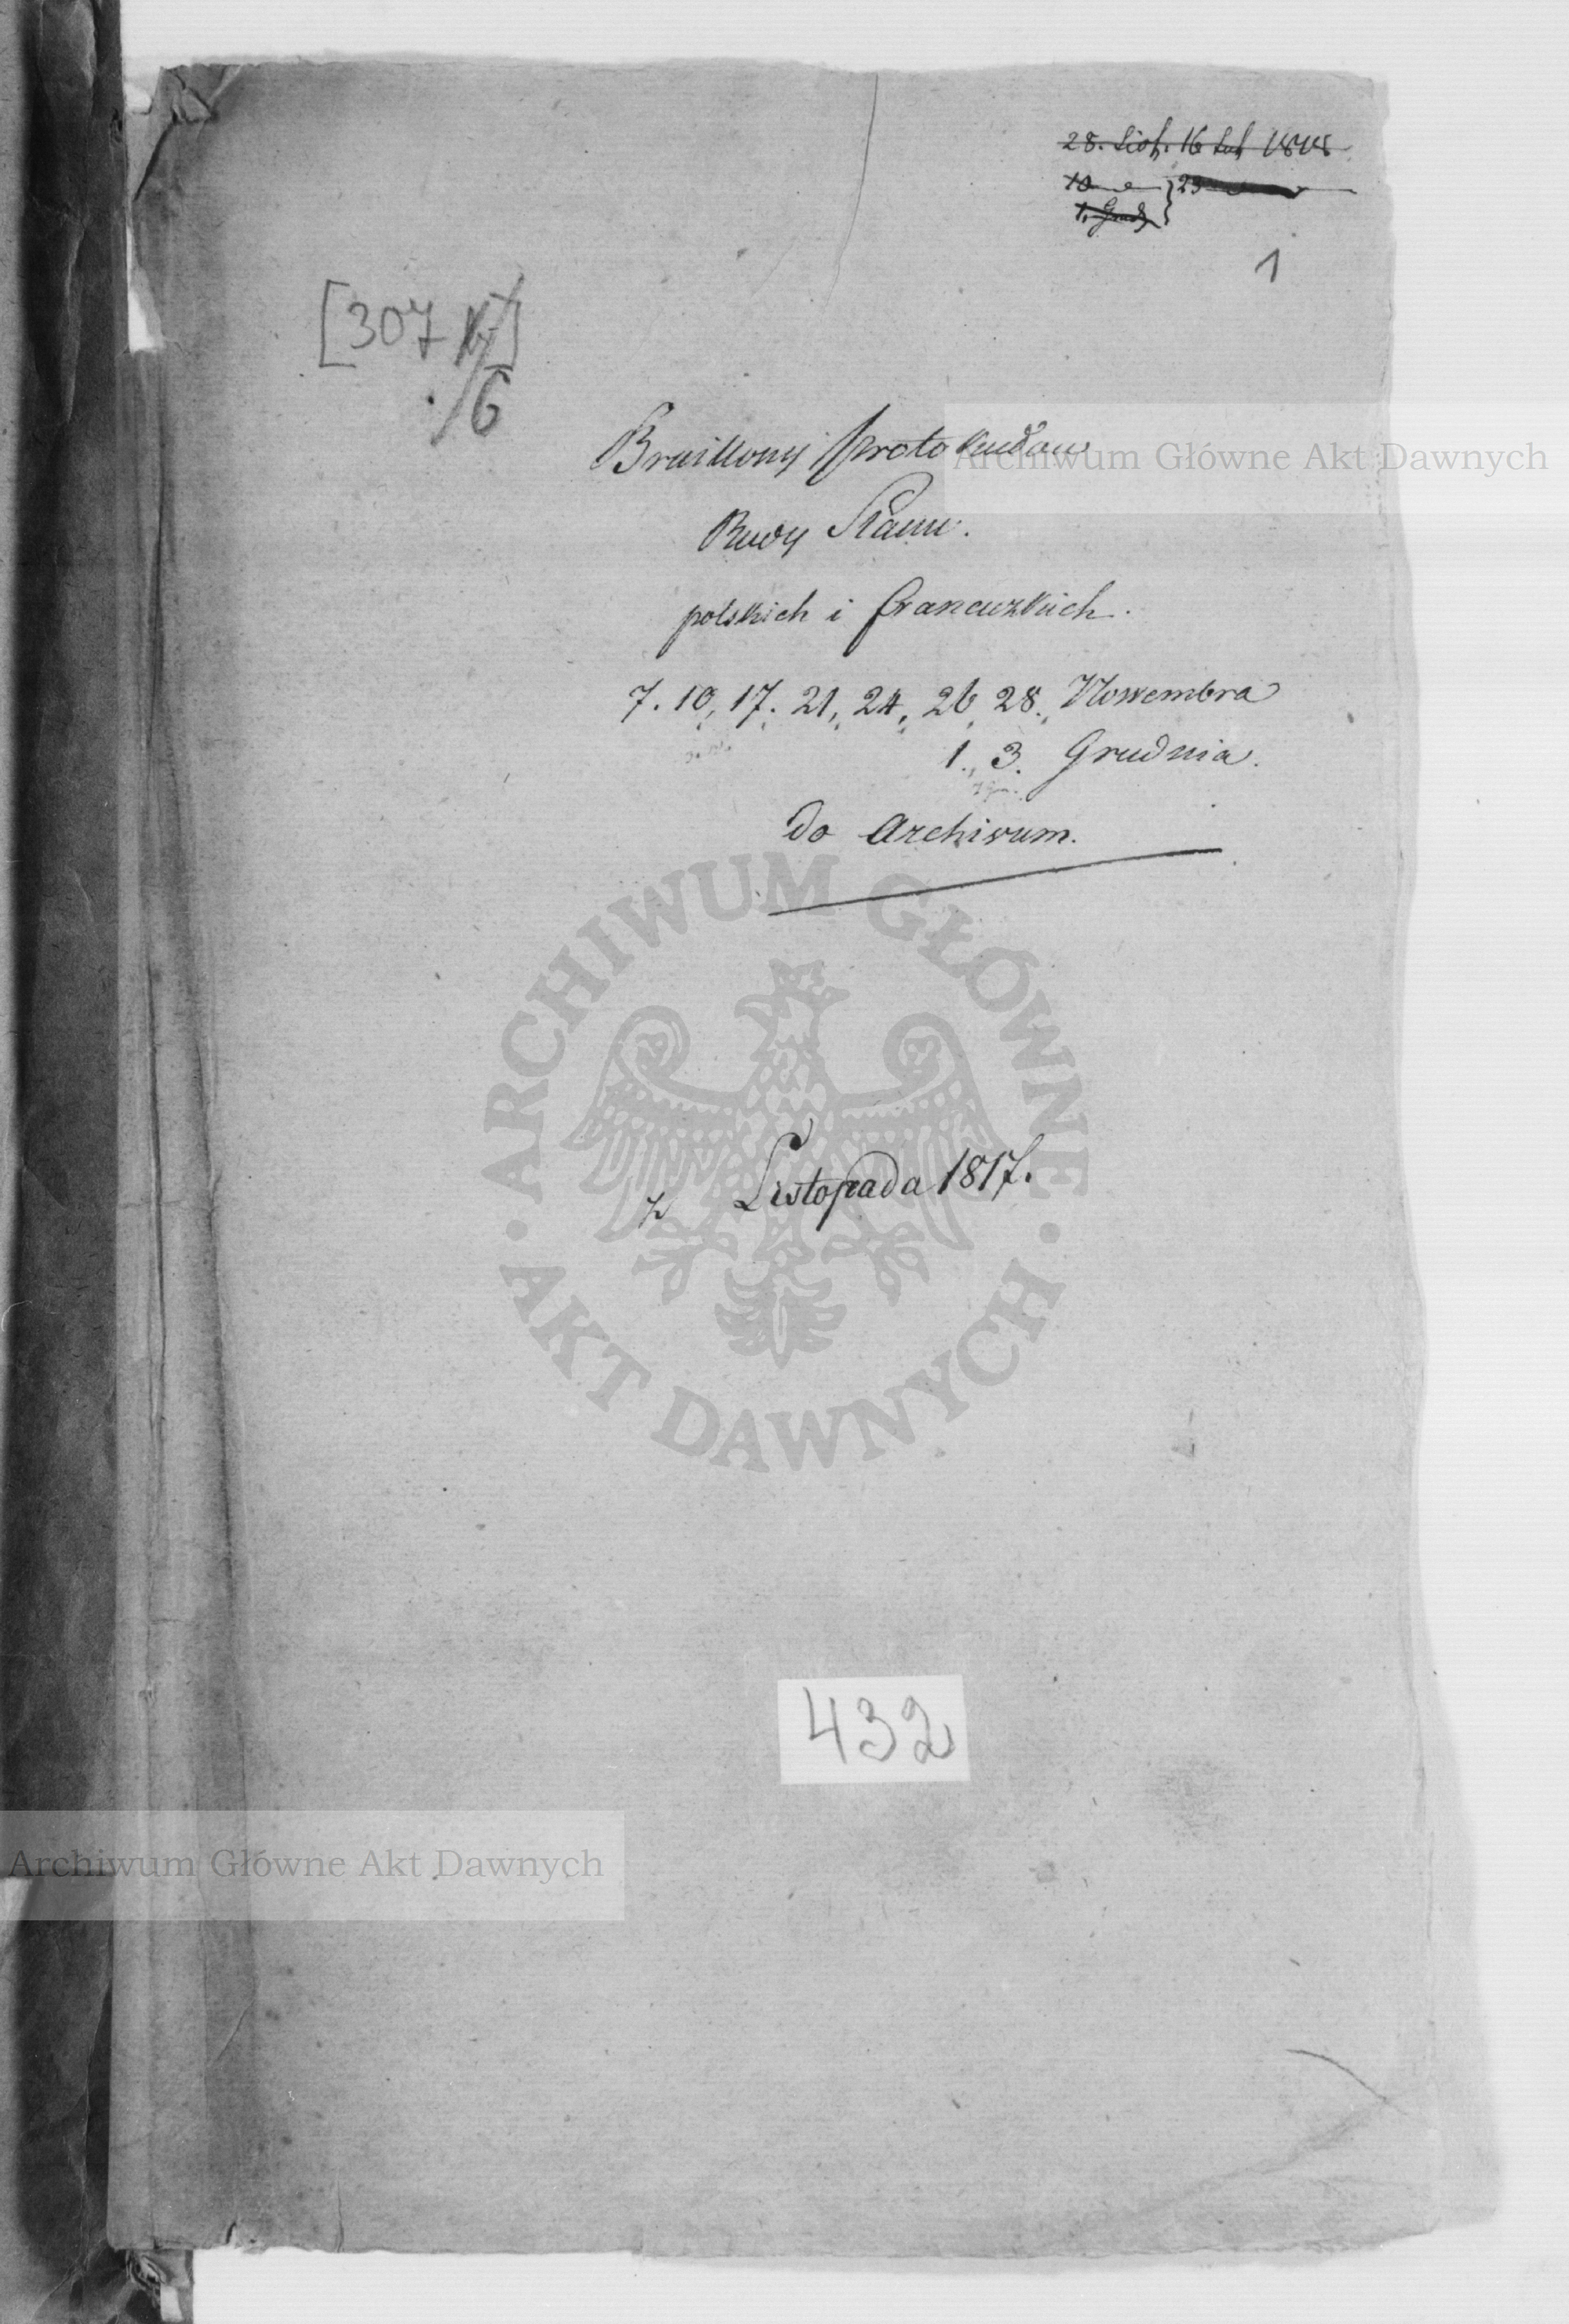 28. List. 16 Lut 1818
10
23
1. Grud
1
[307 k]
./6
Bruillony protokułow
Rady Stanu.
polskich i francuzkich.
7. 10, 17. 21, 24, 26, 28. Nowembra
1., 3. Grudnia.
do Archiwum.
z Listopada 1817.
432
Archiwum Główne Akt Dawnych
ARCHIWUM GŁÓWNE
AKT DAWNYCH
Archiwum Główne Akt Dawnych